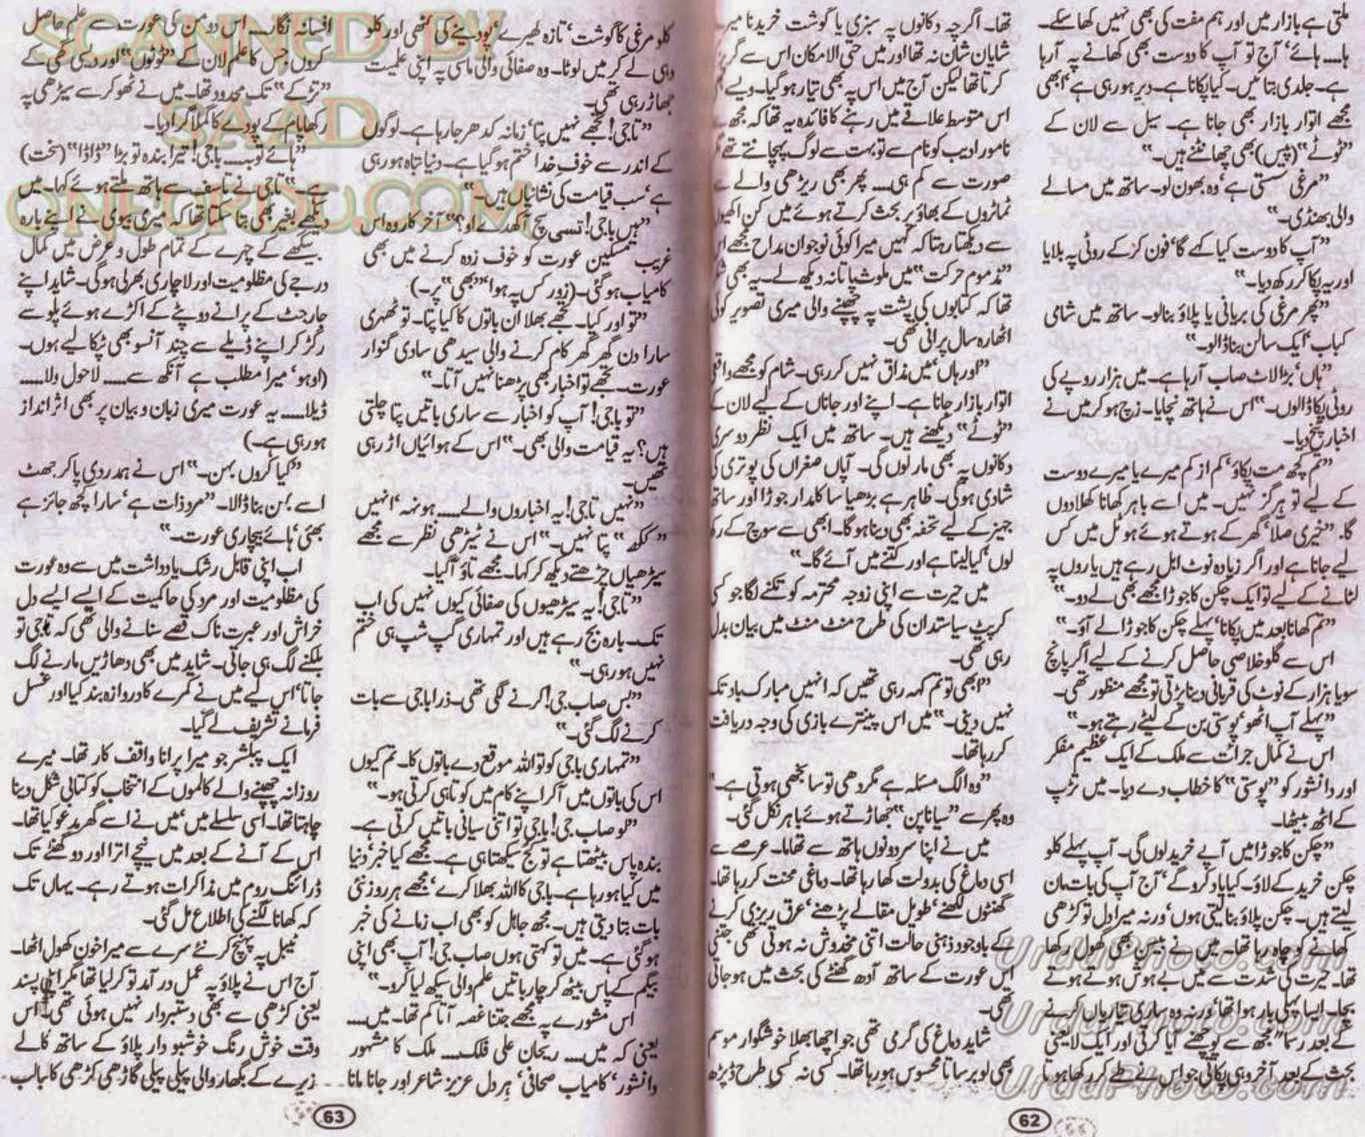 ملتی ہے بازار میں اور ہم مفت کی بھی نہیں کھا سکے۔
ہا۔۔۔ ہائے‘ آج تو آپ کا دوست بھی کھانے پہ آرہا
ہے۔ جلدی بتائیں۔ کیا پکانا ہے۔ دیر ہو رہی ہے‘ ابھی
مجھے اتوار بازار بھی جانا ہے۔ سیل سے لان کے
”ٹوٹے“ (پیس) بھی چھانٹنے ہیں۔“
”مرغی سستی ہے‘ وہ بھون لو۔ ساتھ میں مسالے
والی بھنڈی۔“
”آپ کا دوست کیا کہے گا‘ فون کر کے روٹی پہ بلایا
اور یہ پکا کر رکھ دیا۔“
”پھر مرغی کی بریانی یا پلاؤ بنا لو۔ ساتھ میں شامی
کباب‘ ایک سالن بنا ڈالو۔“
”ہاں‘ بڑا لاٹ صاب آرہا ہے۔ میں ہزار روپے کی
روٹی پکا ڈالوں۔“ اس نے ہاتھ نچایا۔ زچ ہو کر میں نے
اخبار پٹخ دیا۔
”تم کچھ مت پکاؤ‘ کم از کم میرے یا میرے دوست
کے لیے تو ہرگز نہیں۔ میں اسے باہر کھانا کھلا دوں
گا۔“ ”خیری صلا‘ گھر کے ہوتے ہوئے ہوٹل میں کس
لیے جانا ہے اور اگر زیادہ نوٹ ابل رہے ہیں یاروں پہ
لٹانے کے لیے تو ایک چکن کا جوڑا مجھے بھی لے دو۔“
”تم کھانا بعد میں پکانا‘ پہلے چکن کا جوڑا لے آؤ۔“
اس سے گلو خلاصی حاصل کرنے کے لیے اگر پانچ
سو یا ہزار کے نوٹ کی قربانی دینا پڑتی تو مجھے منظور تھی۔
”پہلے آپ اٹھو‘ پوستی بن کے لیٹے رہتے ہو۔“
اس نے کمال جرات سے ملک کے ایک عظیم مفکر
اور دانشور کو ”پوستی“ کا خطاب دے دیا۔ میں تڑپ
کے اٹھ بیٹھا۔
”چکن کا جوڑا میں آپے خرید لوں گی۔ آپ پہلے کلو
چکن خرید کے لاؤ۔ کیا یاد کرو گے‘ آج آپ کی بات مان
لیتے ہیں۔ چکن پلاؤ بنا لیتی ہوں‘ ورنہ میرا دل تو کڑھی
کھانے کو چاہ رہا تھا۔ میں نے بیسن بھی گھول رکھا
تھا۔ حیرت کی شدت سے میں بے ہوش ہوتے ہوتے
بچا۔ ایسا پہلی بار ہوا تھا‘ ورنہ وہ ساری تیاریاں کرنے
کے بعد رسما“ مجھ سے پوچھنے آیا کرتی اور ایک لایعنی
بحث کے بعد آخر وہی پکاتی جو اس نے طے کر رکھا ہوتا
تھا۔ اگرچہ دکانوں پہ سبزی یا گوشت خریدنا میرے
شایان شان نہ تھا اور میں حتی الامکان اس سے گریز
کرتا تھا لیکن آج میں اس پہ بھی تیار ہو گیا۔ ویسے بھی
اس متوسط علاقے میں رہنے کا فائدہ یہ تھا کہ مجھ جیسے
نامور ادیب کو نام سے تو بہت سے لوگ پہچانتے تھے
صورت سے کم ہی۔۔۔ پھر بھی ریڑھی والے سے
ٹماٹروں کے بھاؤ پر بحث کرتے ہوئے میں کن اکھیوں
سے دیکھتا رہتا کہ کہیں میرا کوئی نوجوان مداح مجھے اس
”مذموم حرکت“ میں ملوث پاتا نہ دیکھ لے۔ یہ بھی شکر
تھا کہ کتابوں کی پشت پہ چھپنے والی میری تصویر کوئی
اٹھارہ سال پرانی تھی۔
”اور ہاں‘ میں مذاق نہیں کر رہی۔ شام کو مجھے واقعی
اتوار بازار جانا ہے۔ اپنے اور جاناں کے لیے لان کے
”ٹوٹے“ دیکھنے ہیں۔ ساتھ میں ایک نظر دوسری
دکانوں پہ بھی مار لوں گی۔ آپاں صغراں کی پوتری کی
شادی ہوگی۔ ظاہر ہے بڑھیا سا کلدار جوڑا اور ساتھ
جہیز کے لیے تحفہ بھی دینا ہوگا۔ ابھی سے سوچ کے رکھ
لوں‘ کیا لینا ہے اور کتنے میں آئے گا۔“
میں حیرت سے اپنی زوجہ محترمہ کو تکنے لگا جو کسی
کرپٹ سیاستدان کی طرح منٹ منٹ میں بیان بدل
رہی تھی۔
”ابھی تو تم کہہ رہی تھیں کہ انہیں مبارک باد تک
نہیں دینی۔“ میں اس پینترے بازی کی وجہ دریافت
کر رہا تھا۔
”وہ الگ مسئلہ ہے مگر دھی تو سانجھی ہوتی ہے۔“
وہ پھر سے ”سیاناپن“ جھاڑتے ہوئے باہر نکل گئی۔
میں نے اپنا سر دونوں ہاتھ سے تھاما۔ عرصے سے
اسی دماغ کی بدولت کھا رہا تھا۔ دماغی محنت کر رہا تھا۔
گھنٹوں لکھنے‘ طویل مقالے پڑھنے‘ عرق ریزی کرنے
کے باوجود ذہنی حالت اتنی مخدوش نہ ہوتی تھی جتنی
اس عورت کے ساتھ آدھ گھنٹے کی بحث میں ہو جاتی
تھی۔
شاید دماغ کی گرمی تھی جو اچھا بھلا خوشگوار موسم
بھی لو برساتا محسوس ہو رہا تھا۔ کسی نہ کسی طرح ڈیڑھ
62
کلو مرغی کا گوشت‘ تازہ کھیرے‘ پودینے کی گٹھی اور کلو
دہی لے کر میں لوٹا۔ وہ صفائی والی ماسی پہ اپنی علمیت
جھاڑ رہی تھی۔
”تاجی! تجھے نہیں پتا‘ زمانہ کدھر جا رہا ہے۔ لوگوں
کے اندر سے خوف خدا ختم ہو گیا ہے۔ دنیا تباہ ہو رہی
ہے‘ سب قیامت کی نشانیاں ہیں۔“
”ہیں باجی! تسی سچ آکھدے او؟“ آخر کار وہ اس
غریب مسکین عورت کو خوف زدہ کرنے میں بھی
کامیاب ہو گئی۔ (زور کس پہ ہوا ”بھی“ پر۔)
”تو اور کیا۔ تجھے بھلا ان باتوں کا کیا پتا۔ تو ٹھہری
سارا دن گھر گھر کام کرنے والی سیدھی سادی گنوار
عورت۔ تجھے تو اخبار بھی پڑھنا نہیں آتا۔“
”تو باجی! آپ کو اخبار سے ساری باتیں پتا چلتی
ہیں؟ یہ قیامت والی بھی۔“ اس کے ہوائیاں اڑ رہی
تھیں۔
”نہیں تاجی! یہ اخباروں والے۔۔۔ ہونہہ‘ انہیں
”ککھ“ پتا نہیں۔“ اس نے ٹیڑھی نظر سے مجھے
سیڑھیاں چڑھتے دیکھ کر کہا۔ مجھے تاؤ آگیا۔
”تاجی! یہ سیڑھیوں کی صفائی کیوں نہیں کی اب
تک۔ بارہ بج رہے ہیں اور تمہاری گپ شپ ہی ختم
نہیں ہو رہی۔“
”بس صاب جی! کرنے لگی تھی۔ ذرا باجی سے بات
کرنے لگ گئی۔“
”تمہاری باجی کو تو اللہ موقع دے باتوں کا۔ تم کیوں
اس کی باتوں میں آکر اپنے کام میں کوتاہی کرتی ہو۔“
”لو صاب جی! باجی تو اتنی سیانی باتیں کرتی ہے۔
بندہ پاس بیٹھتا ہے تو کچھ سیکھتا ہی ہے۔ مجھے کیا خبر‘ دنیا
میں کیا ہو رہا ہے۔ باجی کا اللہ بھلا کرے‘ مجھے ہر روز نئی
بات بتا دیتی ہیں۔ مجھ جاہل کو بھی اب زمانے کی خبر
ہو گئی ہے۔ میں تو کہتی ہوں صاب جی! آپ بھی اپنی
بیگم کے پاس بیٹھ کر چار باتیں علم والی سیکھ لیا کرو۔“
اس مشورے پہ مجھے جتنا غصہ آتا کم تھا۔ میں۔۔۔
یعنی کہ میں۔۔۔ ریحان علی فلک۔۔۔ ملک کا مشہور
دانشور‘ کامیاب صحافی‘ ہر دل عزیز شاعر اور جانا مانا
افسانہ نگار۔۔۔ اس دو من کی عورت سے علم حاصل
کروں جس کا علم لان کے ”ٹوٹوں“ اور دیسی گھی کے
”تڑکے“ تک محدود تھا۔ میں نے ٹھوکر سے سیڑھی پہ
رکھا پام کے پودے کا گملا گرا دیا۔
”ہائے توبہ۔۔۔ باجی! تیرا بندہ تو بڑا ”ڈاڈا“ (سخت)
ہے۔“ تاجی نے تاسف سے ہاتھ ملتے ہوئے کہا۔ میں
دیکھے بغیر بھی بتا سکتا تھا کہ میری بیوی نے اپنے بارہ
سکھے کے چہرے کے تمام طول و عرض میں کمال
درجے کی مظلومیت اور لاچاری بھر لی ہوگی۔ شاید اپنے
جارجٹ کے پرانے دوپٹے کے اکڑے ہوئے پلو سے
رگڑ کر اپنے ڈیلے سے چند آنسو بھی ٹپکا لیے ہوں۔
(اوہو‘ میرا مطلب ہے آنکھ سے۔۔۔ لاحول ولا۔۔۔
ڈیلا۔۔۔ یہ عورت میری زبان و بیان پر بھی اثر انداز
ہو رہی ہے۔)
”کیا کروں بہن۔“ اس نے ہمدردی پاکر جھٹ
اسے بہن بنا ڈالا۔ ”مرد ذات ہے‘ سارا کچھ جائز ہے
بھئی‘ ہائے بیچاری عورت۔“
اب اپنی قابل رشک یادداشت میں سے وہ عورت
کی مظلومیت اور مرد کی حاکمیت کے ایسے ایسے دل
خراش اور عبرت ناک قصے سنانے والی تھی کہ تاجی تو
بلکنے لگ ہی جاتی۔ شاید میں بھی دھاڑیں مارنے لگ
جاتا‘ اس لیے میں نے کمرے کا دروازہ بند کیا اور غسل
فرمانے تشریف لے گیا۔
ایک پبلشر جو میرا پرانا واقف کار تھا۔ میرے
روزانہ چھپنے والے کالموں کے انتخاب کو کتابی شکل دینا
چاہتا تھا۔ اسی سلسلے میں‘ میں نے اسے گھر مدعو کیا تھا۔
اس کے آنے کے بعد میں نیچے اترا اور دو گھنٹے تک
ڈرائنگ روم میں مذاکرات ہوتے رہے۔ یہاں تک
کہ کھانا لگنے کی اطلاع مل گئی۔
ٹیبل پہ پہنچ کر نئے سرے سے میرا خون کھول اٹھا۔
آج اس نے پلاؤ پہ عمل درآمد تو کر لیا تھا مگر اپنی پسند
یعنی کڑھی سے بھی دستبردار نہیں ہوئی تھی۔ اس
وقت خوش رنگ خوشبودار پلاؤ کے ساتھ کالے
زیرے کے بگھار والی پیلی پیلی گاڑھی کڑھی کا لبالب
63
SCANNED BY
SAAD
ONEURDU.COM
UrduPhoto.com
UrduPhoto.com
UrduPhoto.com